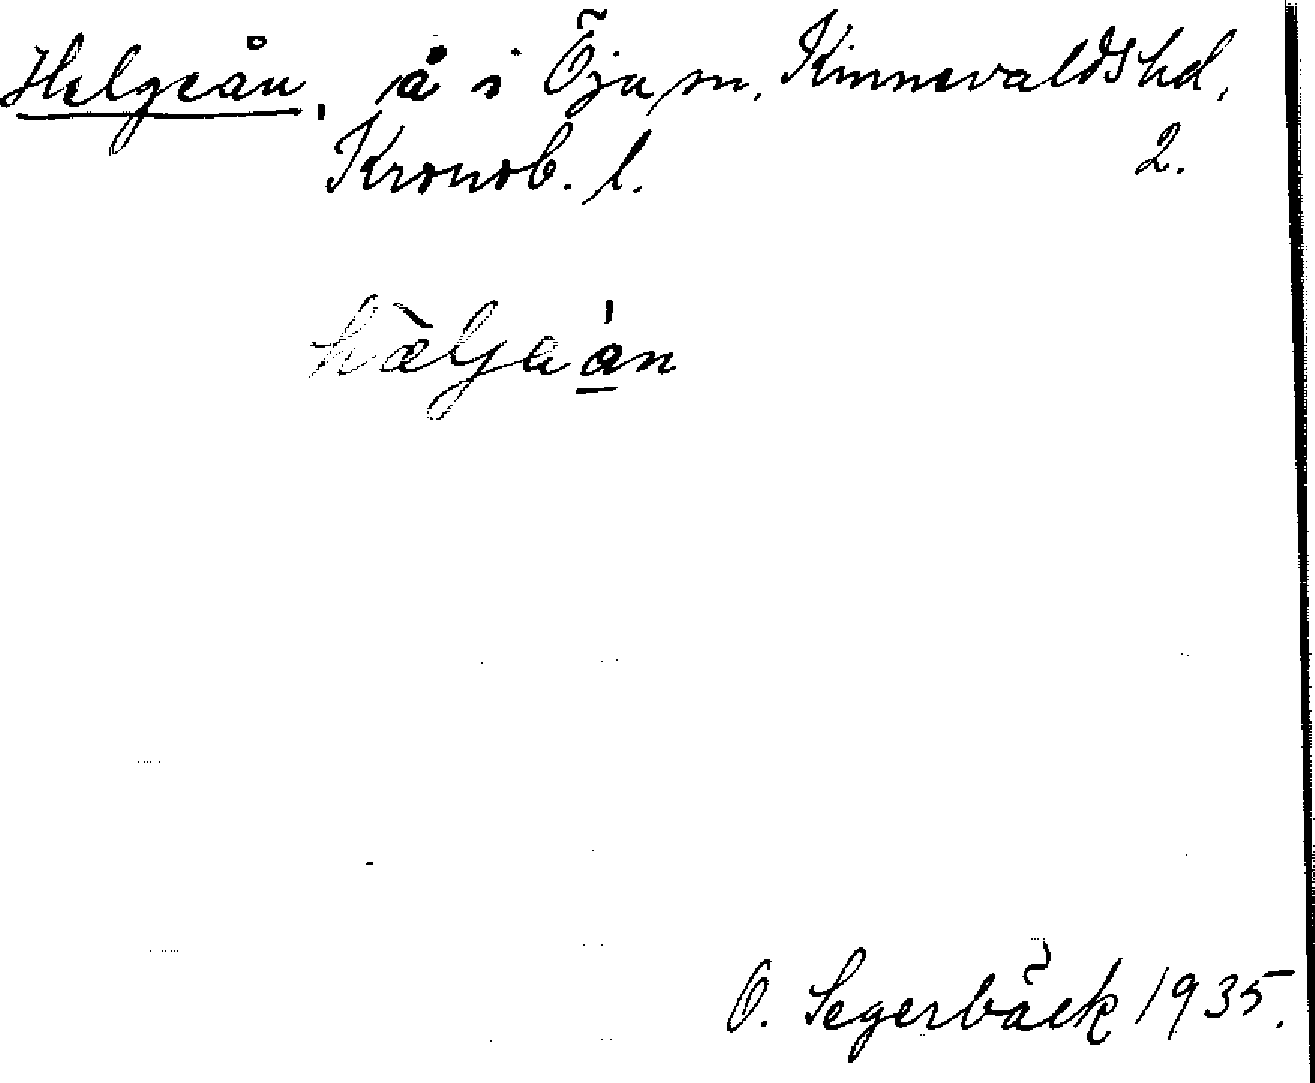 Helgeån, å i Öja sn, Kinnevalds hd,
Kronob. l. 2.
hæ̀lja án
O. Segerbäck 1935.